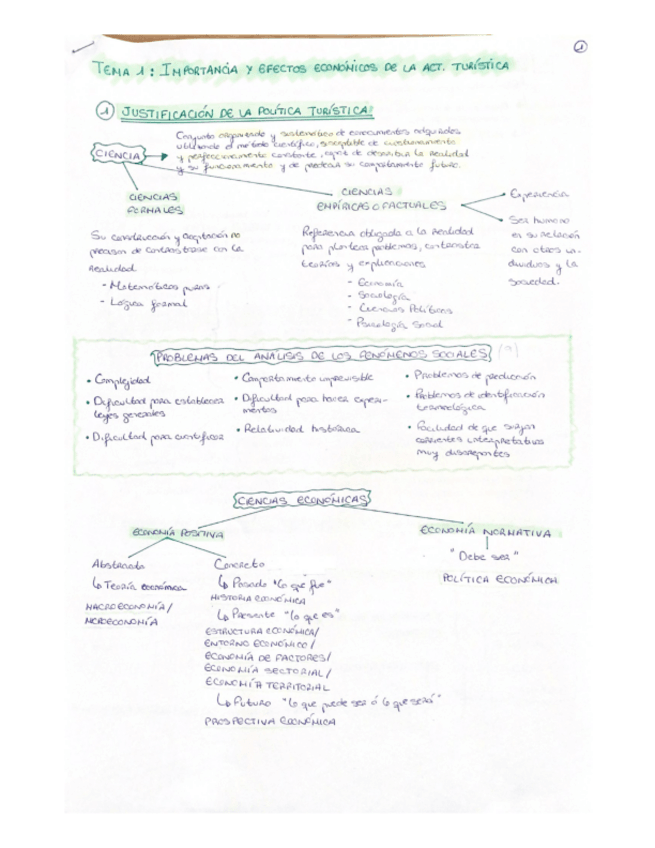 1
TEMA 1: IMPORTANCIA Y EFECTOS ECONÓMICOS DE LA ACT. TURÍSTICA
1 JUSTIFICACIÓN DE LA POLÍTICA TURÍSTICA:
Conjunto organizado y sistemático de conocimientos adquiridos
utilizando el método científico, susceptible de
CIENCIA
y perfeccionamiento constante, capaz de describir la realidad
y su funcionamiento y de predecir su comportamiento futuro.
CIENCIAS
FORMALES
CIENCIAS
EMPÍRICAS O FACTUALES
Experiencia
Ser humano
en su relación
con otros in-
dividuos y la
sociedad.
Su construcción y aceptación no
precisan de contrastarse con la
realidad
- Matemáticas puras
- Lógica formal
Referencia obligada a la realidad
para plantear problemas, contrastar
teorías y explicaciones
- Economía
- Sociología
- Ciencias Políticas
- Psicología Social
PROBLEMAS DEL ANÁLISIS DE LOS FENÓMENOS SOCIALES (9)
• Complejidad
• Dificultad para establecer
leyes generales
• Dificultad para cuantificar
• Comportamiento imprevisible
• Dificultad para hacer experi-
mentos
• Relatividad histórica
• Problemas de predicción
• Problemas de identificación
terminológica
• Facilidad de que surjan
corrientes interpretativas
muy discrepantes
CIENCIAS ECONÓMICAS
ECONOMÍA POSITIVA
ECONOMÍA NORMATIVA
"Debe ser"
POLÍTICA ECONÓMICA
Abstracto
↳ Teoría económica
MACROECONOMÍA/
MICROECONOMÍA
Concreto
↳ Pasado "lo que fue"
HISTORIA ECONÓMICA
↳ Presente "lo que es"
ESTRUCTURA ECONÓMICA/
ENTORNO ECONÓMICO/
ECONOMÍA DE FACTORES/
ECONOMÍA SECTORIAL/
ECONOMÍA TERRITORIAL
↳ Futuro "lo que puede ser ó lo que será"
PROSPECTIVA ECONÓMICA